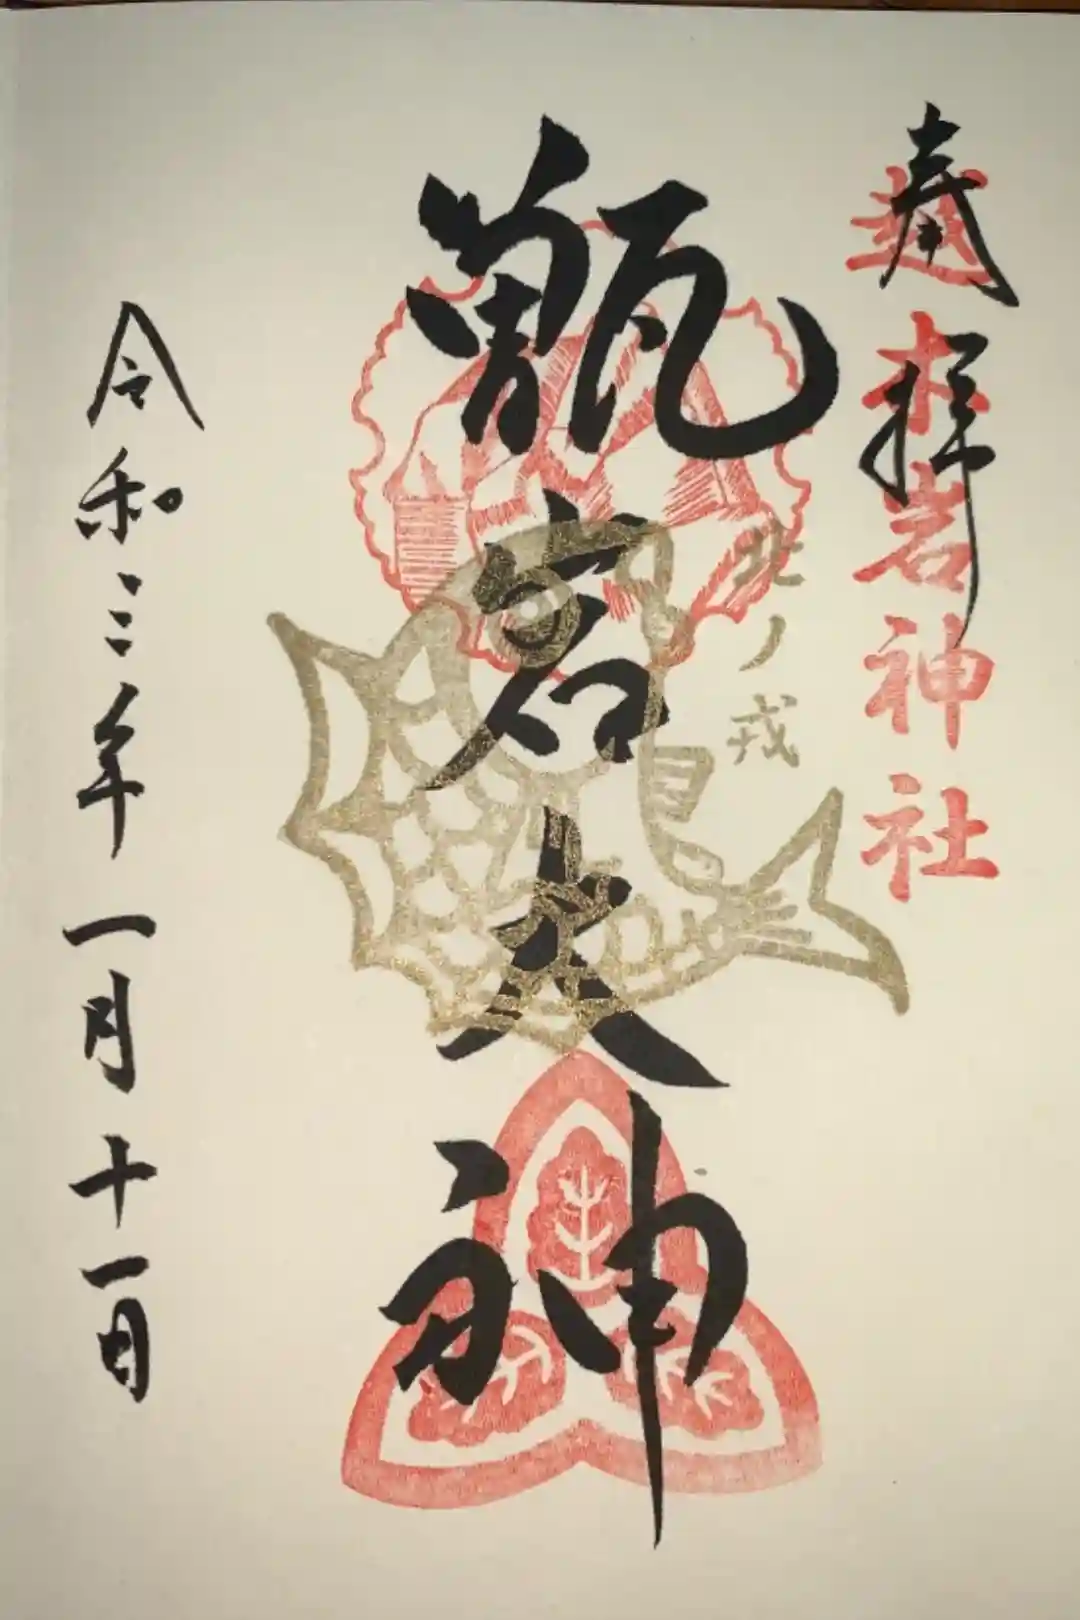 奉拝
越木岩神社
甑岩大神
北ノ戎
令和三年一月十一日